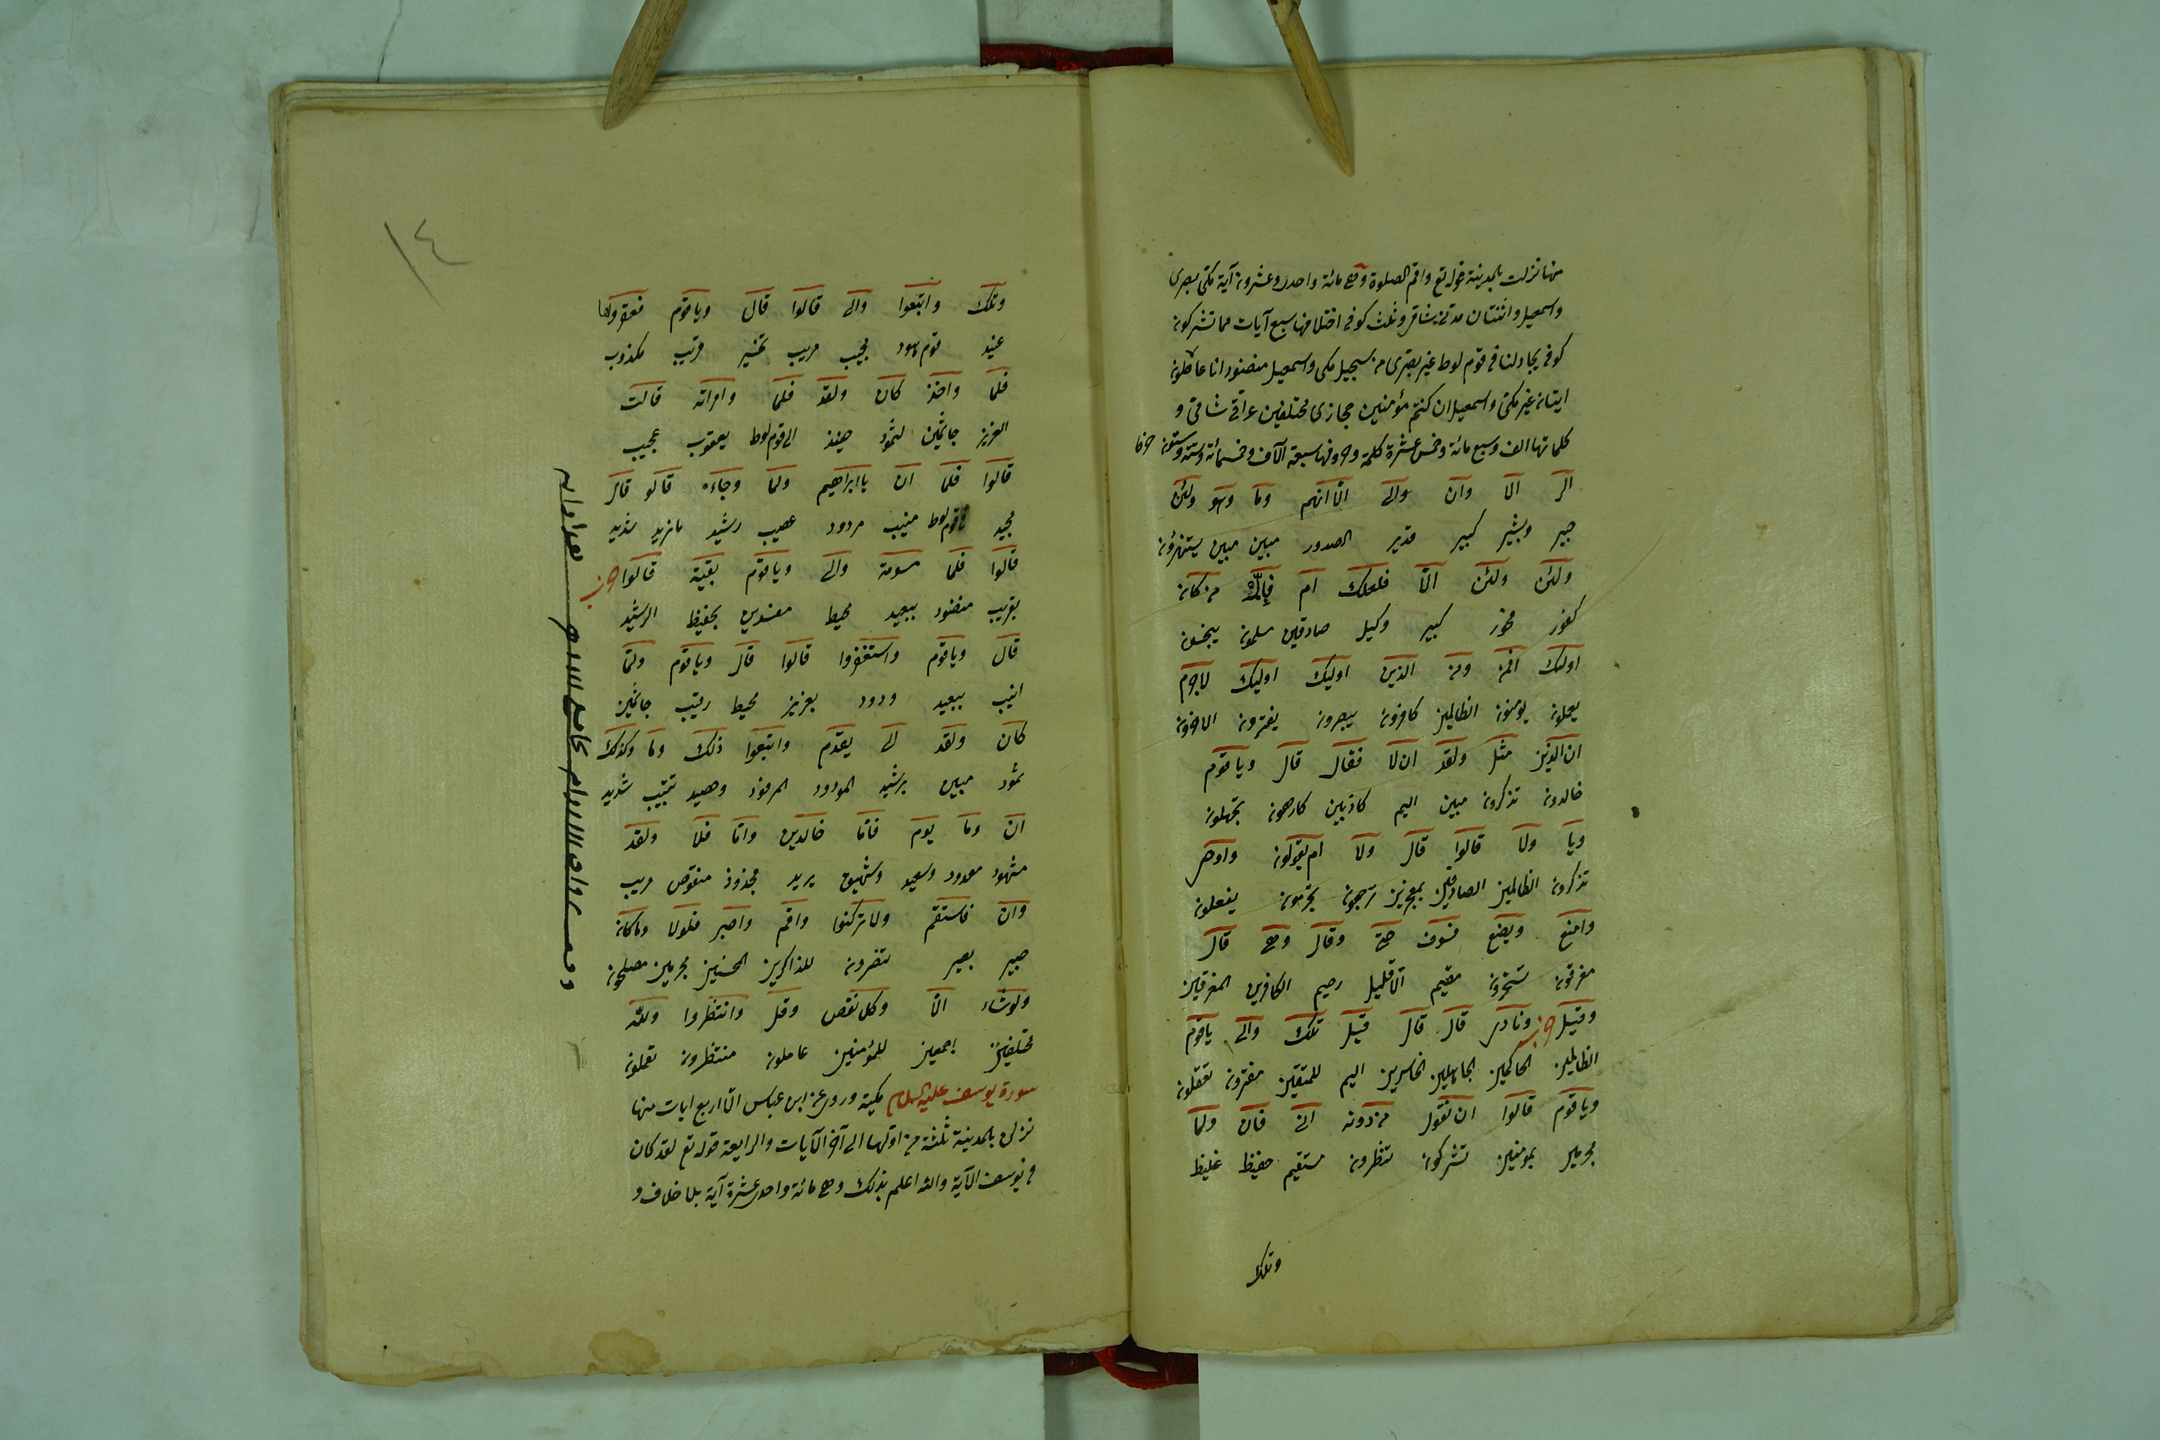 منها نزلت بالمدينة قوله تع واقم الصلوة وهي مائة واحدى وعشرون آية مكي بصرى
واسمعيل واثنتان مدني شامي وثلث كوفي اختلافها سبع آيات مما تشركون
كوفي يجادلنا في قوم لوط غير بصرى من سجيل مكى واسمعيل منضود انا عاملون
ايتان غير مكى واسمعيل ان كنتم مؤمنين حجازى مختلفين عراقي شامي و
كلماتها الف وسبع مائة وخمس عشرة كلمة وحروفها سبعة آلاف وخمسمائة وستة وستون حرفا
الر الا وان والى الا انهم وما وهو ولئن
خبير وبشير كبير قدير الصدور مبين مبين يستهزؤن
ولئن ولئن الا فلعلك ام فالم من كان
كفور فخور كبير وكيل صادقين مسلمون يبخسون
اولئك افمن ومن الذين اوليك اوليك لاجرم
يعملون يومنون الظالمين كافرون يبصرون يفترون الاخسرون
ان الذين مثل ولقد ان لا فقال قال وياقوم
خالدون تذكرون مبين اليم كاذبين كارهون تجهلون
ويا ولا قالوا قال ولا ام يقولون واوحى
تذكرون الظالمين الصادقين بمعجزين ترجعون تجرمون يفعلون
واصنع ويصنع فسوف حتى وقال وهي قال
مغرقون تسخرون مقيم الا قليل رحيم الكافرين المغرقين
وقيل ونادى قال قال قيل تلك والى ياقوم
الظالمين الحاكمين الجاهلين الخاسرين اليم للمتقين مفترون تعقلون
وياقوم قالوا ان نقول من دونه انى فان ولما
مجرمين بمومنين تشركون تنظرون مستقيم حفيظ غليظ
وتلك
١٤
وتلك واتبعوا والى قالوا قال وياقوم فعقروها
عنيد قوم هود مجيب مريب تخسير قريب مكذوب
فلما واخذ كان ولقد فلما وامراته قالت
العزيز جاثمين لثمود حنيذ الى قوم لوط يعقوب عجيب
قالوا فلما ان ياابراهيم ولما وجاءه قالو قال
مجيد قوم لوط منيب مردود عصيب رشيد مانريد شديد
قالوا فلما مسومة والى وياقوم بقية قالوا
بقريب منضود ببعيد محيط مفسدين بحفيظ الرشيد
قال وياقوم واستغفروا قالوا قال وياقوم ولما
انيب ببعيد ودود بعزيز محيط رقيب جاثمين
كان ولقد الى يقدم واتبعوا ذلك وما وكذلك
ثمود مبين برشيد المورود المرفود وحصيد تتبيب شديد
ان وما يوم فاما خالدين واما فلا ولقد
مشهود معدود وسعيد وشهيق يريد مجذوذ منقوص مريب
وان فاستقم ولاتركنوا واقم واصبر فلولا وماكان
خبير بصير تنصرون للذاكرين المحسنين مجرمين مصلحون
ولوشاء الا وكل نقص وقل وانتظروا ولله
مختلفين اجمعين للمؤمنين عاملون منتظرون تعملون
سورة يوسف عليه السلام مكية وروى عن ابن عباس الا اربع ايات منها
نزلن بالمدينة ثلثة من اولها الى آخر الآيات والرابعة قوله تع لقد كان
في يوسف الآية والله اعلم بذلك وهي مائة واحدى عشرة آية بلا خلاف و